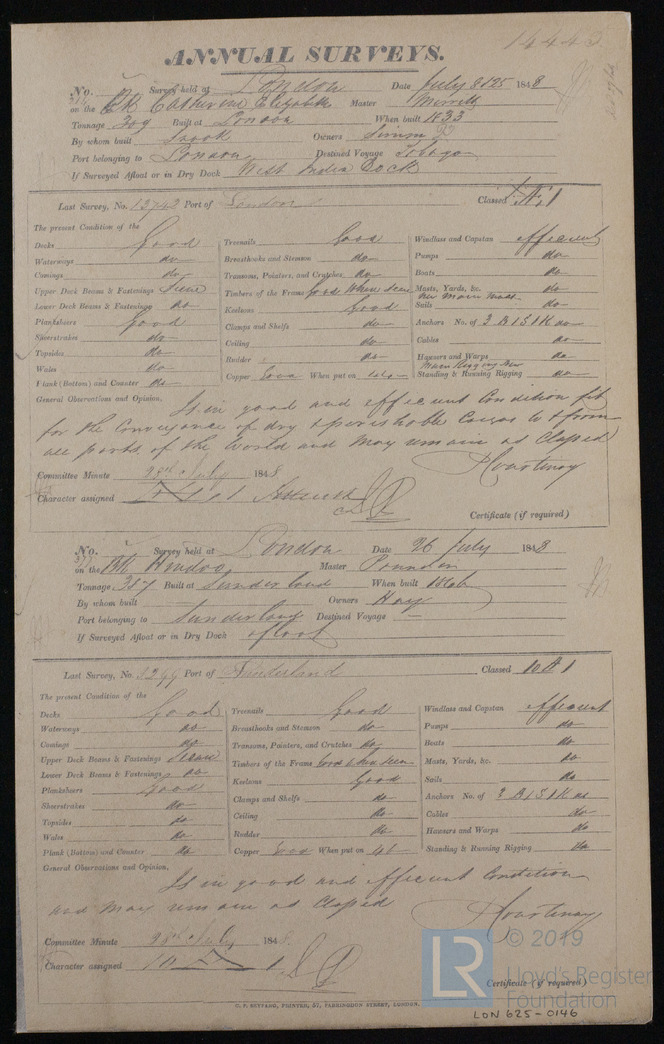 14443
ANNUAL SURVEYS.
No. Survey held at London Date July 8 & 25 1848
on the Bk Catherine Elizabeth Master Merritt
Tonnage 309 Built at London When built 1833
By whom built Owners
Port belonging to London Destined Voyage Tobago
If Surveyed Afloat or in Dry Dock West India Dock
Last Survey, No. 13742 Port of London Classed Æ 1
The present Condition of the
Decks Good
Waterways do
Comings do
Upper Deck Beams & Fastenings
Lower Deck Beams & Fastenings do
Planksheers Good
Sheerstrakes do
Topsides do
Wales do
Plank (Bottom) and Counter do
Treenails Good
Breasthooks and Stemson do
Transoms, Pointers, and Crutches do
Timbers of the Frame Good where seen
Keelsons Good
Clamps and Shelfs do
Ceiling do
Rudder do
Copper Good When put on
Windlass and Capstan efficient
Pumps do
Boats do
Masts, Yards, &c. do
New Main Mast
Sails do
Anchors No. of 3 B 1 S 1 K do
Cables do
Hawsers and Warps do
Main Rigging New
Standing & Running Rigging do
General Observations and Opinion,
Is in good and efficient Condition fit
for the Conveyance of dry & perishable Cargo to & from
all parts of the World and May remain as Classed
Courtenay
Committee Minute 28th July 1848
Character assigned Æ 1
Certificate (if required)
No. Survey held at London Date 26 July 1848
on the Bk Hindoo Master
Tonnage 357 Built at Sunderland When built 1846
By whom built Owners Hay
Port belonging to Sunderland Destined Voyage —
If Surveyed Afloat or in Dry Dock afloat
Last Survey, No. Port of Sunderland Classed 10 A 1
The present Condition of the
Decks Good
Waterways do
Comings do
Upper Deck Beams & Fastenings
Lower Deck Beams & Fastenings do
Planksheers Good
Sheerstrakes do
Topsides do
Wales do
Plank (Bottom) and Counter do
Treenails Good
Breasthooks and Stemson do
Transoms, Pointers, and Crutches do
Timbers of the Frame Good where seen
Keelsons Good
Clamps and Shelfs do
Ceiling do
Rudder do
Copper Good When put on
Windlass and Capstan efficient
Pumps do
Boats do
Masts, Yards, &c. do
Sails do
Anchors No. of 3 B 1 S 1 K do
Cables do
Hawsers and Warps do
Standing & Running Rigging do
General Observations and Opinion,
Is in good and efficient Condition
and May remain as Classed
Courtenay
Committee Minute 28th July 1848
Character assigned 10 A 1
Certificate (if required)
C. F. SEYFANG, PRINTER, 57, FARRINGDON STREET, LONDON.
LR © 2019
Lloyd's Register
Foundation
LON 625-0146